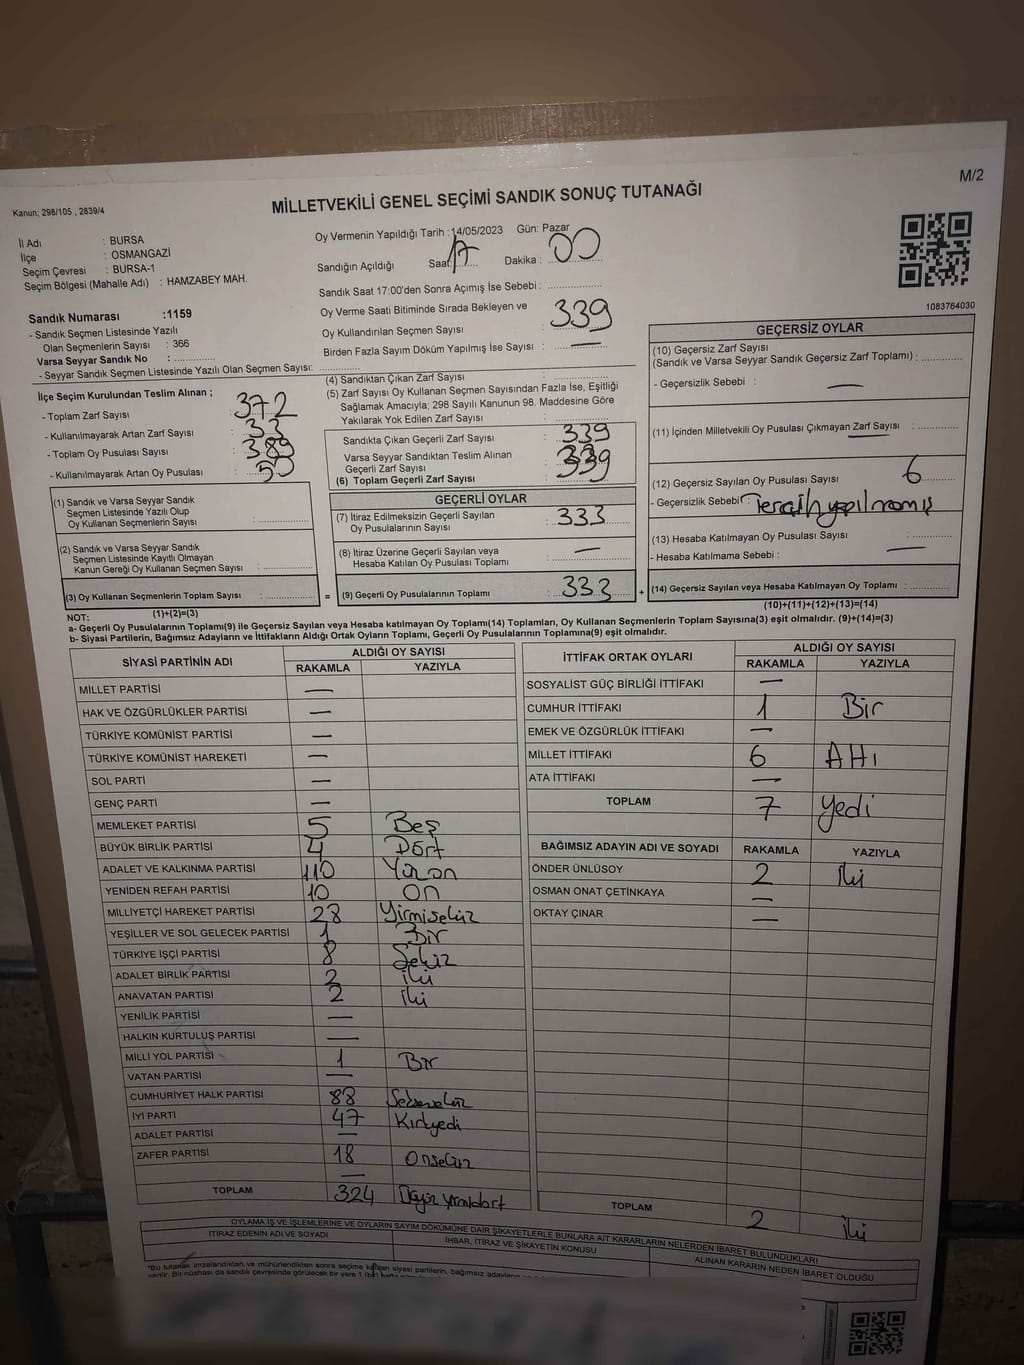 M/2
Kanun; 298/105 , 2839/4
MİLLETVEKİLİ GENEL SEÇİMİ SANDIK SONUÇ TUTANAĞI
İl Adı : BURSA
İlçe : OSMANGAZİ
Seçim Çevresi : BURSA-1
Seçim Bölgesi (Mahalle Adı) : HAMZABEY MAH.
Sandık Numarası :1159
- Sandık Seçmen Listesinde Yazılı
Olan Seçmenlerin Sayısı : 366
Varsa Seyyar Sandık No : ...............
- Seyyar Sandık Seçmen Listesinde Yazılı Olan Seçmen Sayısı: ...............
Oy Vermenin Yapıldığı Tarih : 14/05/2023 Gün: Pazar
Sandığın Açıldığı Saat: 17 Dakika : 00
Sandık Saat 17:00'den Sonra Açımış İse Sebebi : ...............
Oy Verme Saati Bitiminde Sırada Bekleyen ve
Oy Kullandırılan Seçmen Sayısı : 339
Birden Fazla Sayım Döküm Yapılmış İse Sayısı : —
1083764030
İlçe Seçim Kurulundan Teslim Alınan ;
- Toplam Zarf Sayısı : 372
- Kullanılmayarak Artan Zarf Sayısı : 33
- Toplam Oy Pusulası Sayısı : 389
- Kullanılmayarak Artan Oy Pusulası : 50
(1) Sandık ve Varsa Seyyar Sandık
Seçmen Listesinde Yazılı Olup
Oy Kullanan Seçmenlerin Sayısı : ...............
(2) Sandık ve Varsa Seyyar Sandık
Seçmen Listesinde Kayıtlı Olmayan
Kanun Gereği Oy Kullanan Seçmen Sayısı : ...............
(3) Oy Kullanan Seçmenlerin Toplam Sayısı : ............... =
(1)+(2)=(3)
(4) Sandıktan Çıkan Zarf Sayısı : ...............
(5) Zarf Sayısı Oy Kullanan Seçmen Sayısından Fazla İse, Eşitliği
Sağlamak Amacıyla; 298 Sayılı Kanunun 98. Maddesine Göre
Yakılarak Yok Edilen Zarf Sayısı : ...............
Sandıkta Çıkan Geçerli Zarf Sayısı : 339
Varsa Seyyar Sandıktan Teslim Alınan
Geçerli Zarf Sayısı :
(6) Toplam Geçerli Zarf Sayısı : 339
GEÇERLİ OYLAR
(7) İtiraz Edilmeksizin Geçerli Sayılan
Oy Pusulalarının Sayısı : 333
(8) İtiraz Üzerine Geçerli Sayılan veya
Hesaba Katılan Oy Pusulası Toplamı : —
(9) Geçerli Oy Pusulalarının Toplamı : 333 +
GEÇERSİZ OYLAR
(10) Geçersiz Zarf Sayısı
(Sandık ve Varsa Seyyar Sandık Geçersiz Zarf Toplamı) : ...............
- Geçersizlik Sebebi : —
(11) İçinden Milletvekili Oy Pusulası Çıkmayan Zarf Sayısı : ...............
(12) Geçersiz Sayılan Oy Pusulası Sayısı : 6
- Geçersizlik Sebebi : Tercih yapılmamış
(13) Hesaba Katılmayan Oy Pusulası Sayısı : ...............
- Hesaba Katılmama Sebebi : —
(14) Geçersiz Sayılan veya Hesaba Katılmayan Oy Toplamı : ...............
(10)+(11)+(12)+(13)=(14)
NOT:
a- Geçerli Oy Pusulalarının Toplamı(9) ile Geçersiz Sayılan veya Hesaba katılmayan Oy Toplamı(14) Toplamları, Oy Kullanan Seçmenlerin Toplam Sayısına(3) eşit olmalıdır. (9)+(14)=(3)
b- Siyasi Partilerin, Bağımsız Adayların ve İttifakların Aldığı Ortak Oyların Toplamı, Geçerli Oy Pusulalarının Toplamına(9) eşit olmalıdır.
SİYASİ PARTİNİN ADI ALDIĞI OY SAYISI
RAKAMLA YAZIYLA
MİLLET PARTİSİ —
HAK VE ÖZGÜRLÜKLER PARTİSİ —
TÜRKİYE KOMÜNİST PARTİSİ —
TÜRKİYE KOMÜNİST HAREKETİ —
SOL PARTİ —
GENÇ PARTİ —
MEMLEKET PARTİSİ 5 Beş
BÜYÜK BİRLİK PARTİSİ 4 Dört
ADALET VE KALKINMA PARTİSİ 110 Yüzon
YENİDEN REFAH PARTİSİ 10 On
MİLLİYETÇİ HAREKET PARTİSİ 28 Yirmisekiz
YEŞİLLER VE SOL GELECEK PARTİSİ 1 Bir
TÜRKİYE İŞÇİ PARTİSİ 8 Sekiz
ADALET BİRLİK PARTİSİ 2 iki
ANAVATAN PARTİSİ 2 iki
YENİLİK PARTİSİ —
HALKIN KURTULUŞ PARTİSİ —
MİLLİ YOL PARTİSİ 1 Bir
VATAN PARTİSİ —
CUMHURİYET HALK PARTİSİ 88 Seksensekiz
İYİ PARTİ 47 Kırkyedi
ADALET PARTİSİ —
ZAFER PARTİSİ 18 Onsekiz
TOPLAM 324 Üçyüz yirmidört
İTTİFAK ORTAK OYLARI ALDIĞI OY SAYISI
RAKAMLA YAZIYLA
SOSYALİST GÜÇ BİRLİĞİ İTTİFAKI —
CUMHUR İTTİFAKI 1 Bir
EMEK VE ÖZGÜRLÜK İTTİFAKI —
MİLLET İTTİFAKI 6 Altı
ATA İTTİFAKI —
TOPLAM 7 Yedi
BAĞIMSIZ ADAYIN ADI VE SOYADI RAKAMLA YAZIYLA
ÖNDER ÜNLÜSOY 2 iki
OSMAN ONAT ÇETİNKAYA —
OKTAY ÇINAR —
TOPLAM 2 iki
OYLAMA İŞ VE İŞLEMLERİNE VE OYLARIN SAYIM DÖKÜMÜNE DAİR ŞİKAYETLERLE BUNLARA AİT KARARLARIN NELERDEN İBARET BULUNDUKLARI
İTİRAZ EDENİN ADI VE SOYADI İHBAR, İTİRAZ VE ŞİKAYETİN KONUSU ALINAN KARARIN NEDEN İBARET OLDUĞU
*Bu tutanak imzalandıktan ve mühürlendikten sonra seçime katılan siyasi partilerin, bağımsız adayların
verilir. Bir nüshası da sandık çevresinde görülecek bir yere 1 (bir) hafta